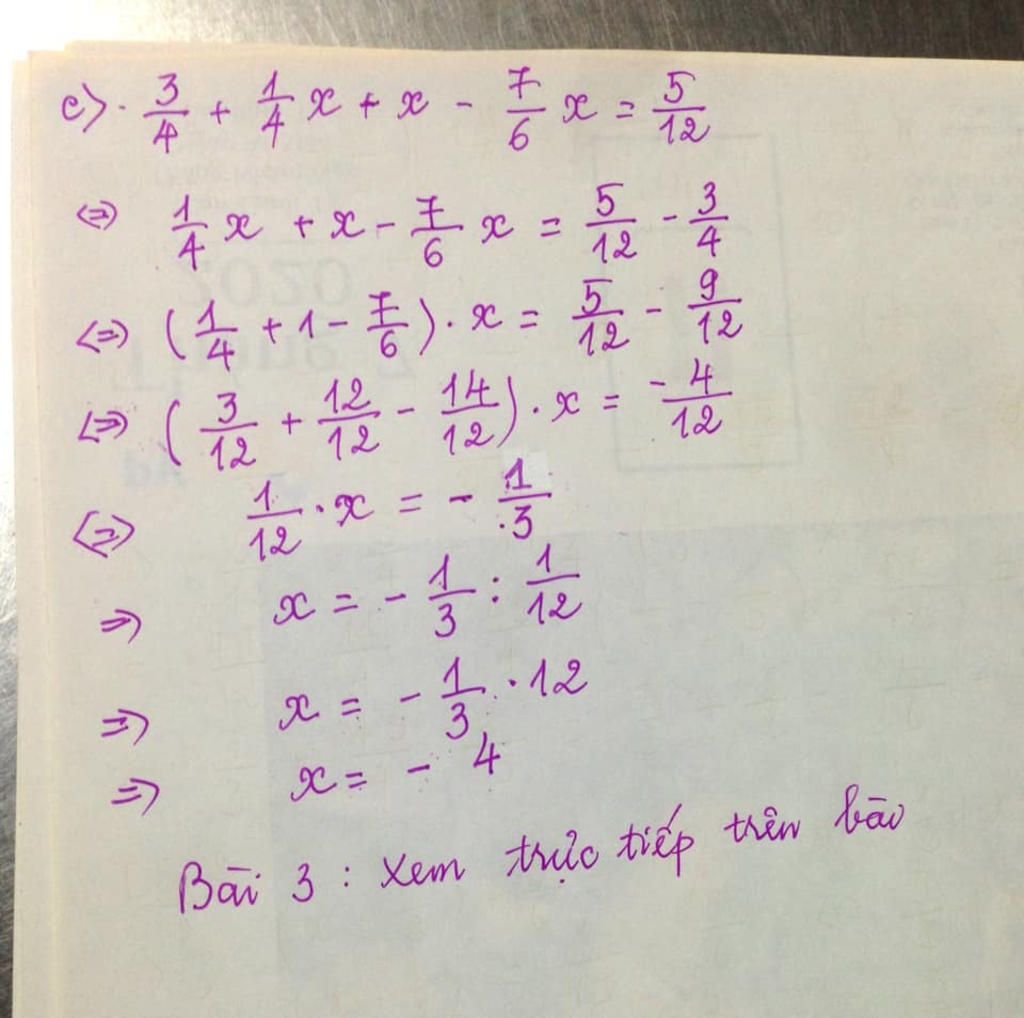 c) . 3/4 + 1/4 x + x - 7/6 x = 5/12
<=> 1/4 x + x - 7/6 x = 5/12 - 3/4
<=> (1/4 + 1 - 7/6) . x = 5/12 - 9/12
<=> (3/12 + 12/12 - 14/12) . x = - 4/12
<=> 1/12 . x = - 1/3
=> x = - 1/3 : 1/12
=> x = - 1/3 . 12
=> x = - 4
Bài 3 : Xem trực tiếp trên bào